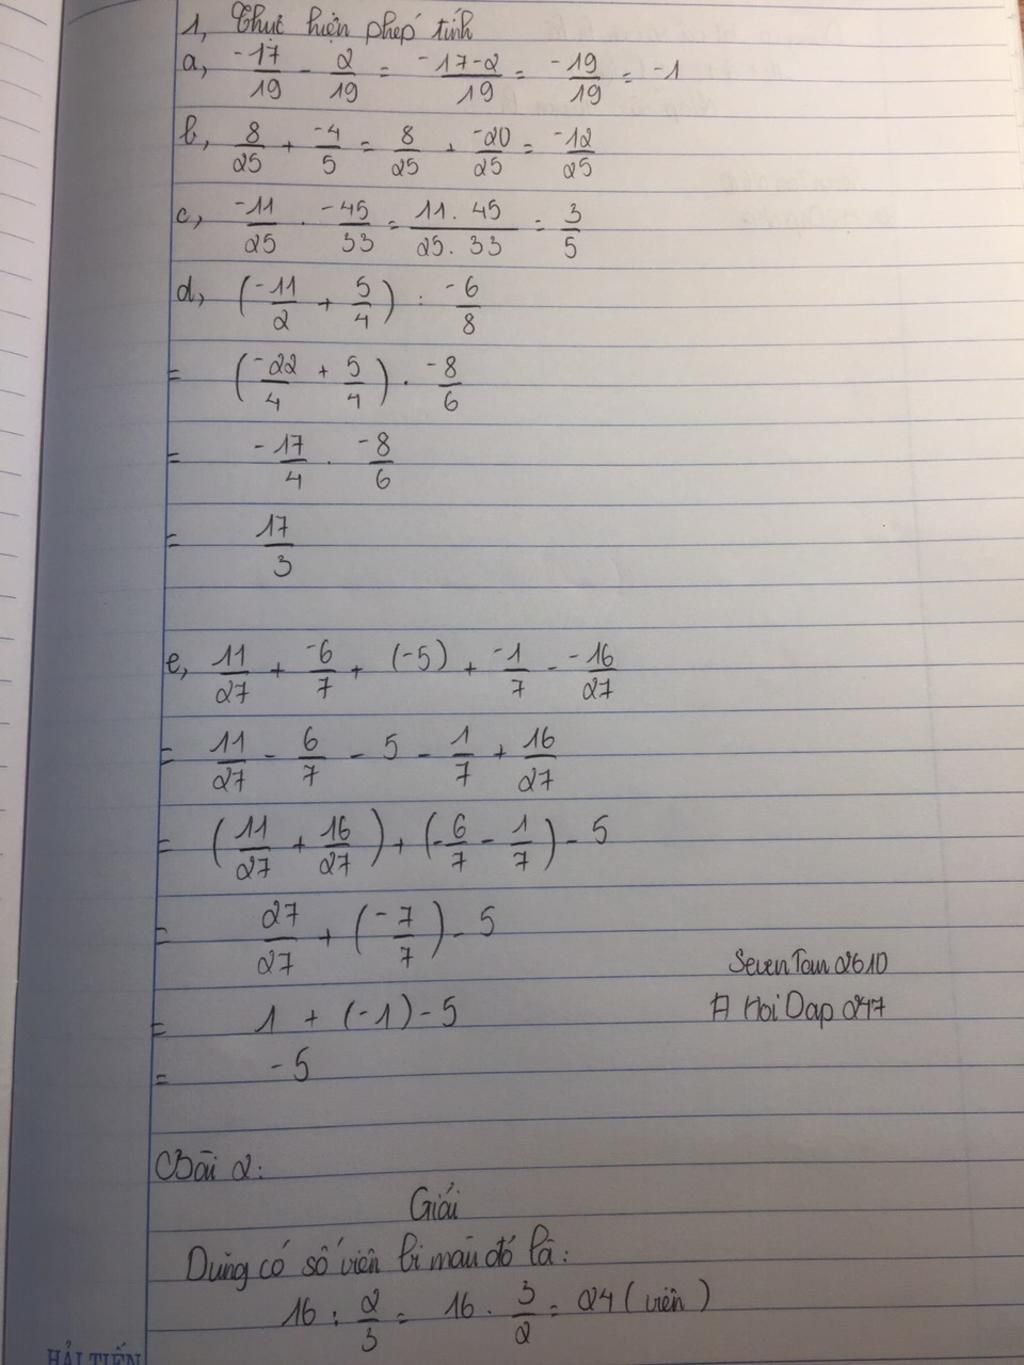 1, Thực hiện phép tính
a, -17/19 - 2/19 = -17-2/19 = -19/19 = -1
b, 8/25 + -4/5 = 8/25 + -20/25 = -12/25
c, -11/25 . -45/33 = 11.45/25.33 = 3/5
d, (-11/2 + 5/4) : -6/8
= (-22/4 + 5/4) . -8/6
= -17/4 . -8/6
= 17/3
e, 11/27 + -6/7 + (-5) + -1/7 - -16/27
= 11/27 - 6/7 - 5 - 1/7 + 16/27
= (11/27 + 16/27) + (-6/7 - 1/7) - 5
= 27/27 + (-7/7) - 5
= 1 + (-1) - 5
= -5
SevenTeam2610
# HoiDap247
Bài 2:
Giải
Dũng có số viên bi màu đỏ là:
16 : 2/3 = 16 . 3/2 = 24 (viên)
HẢI TIẾN